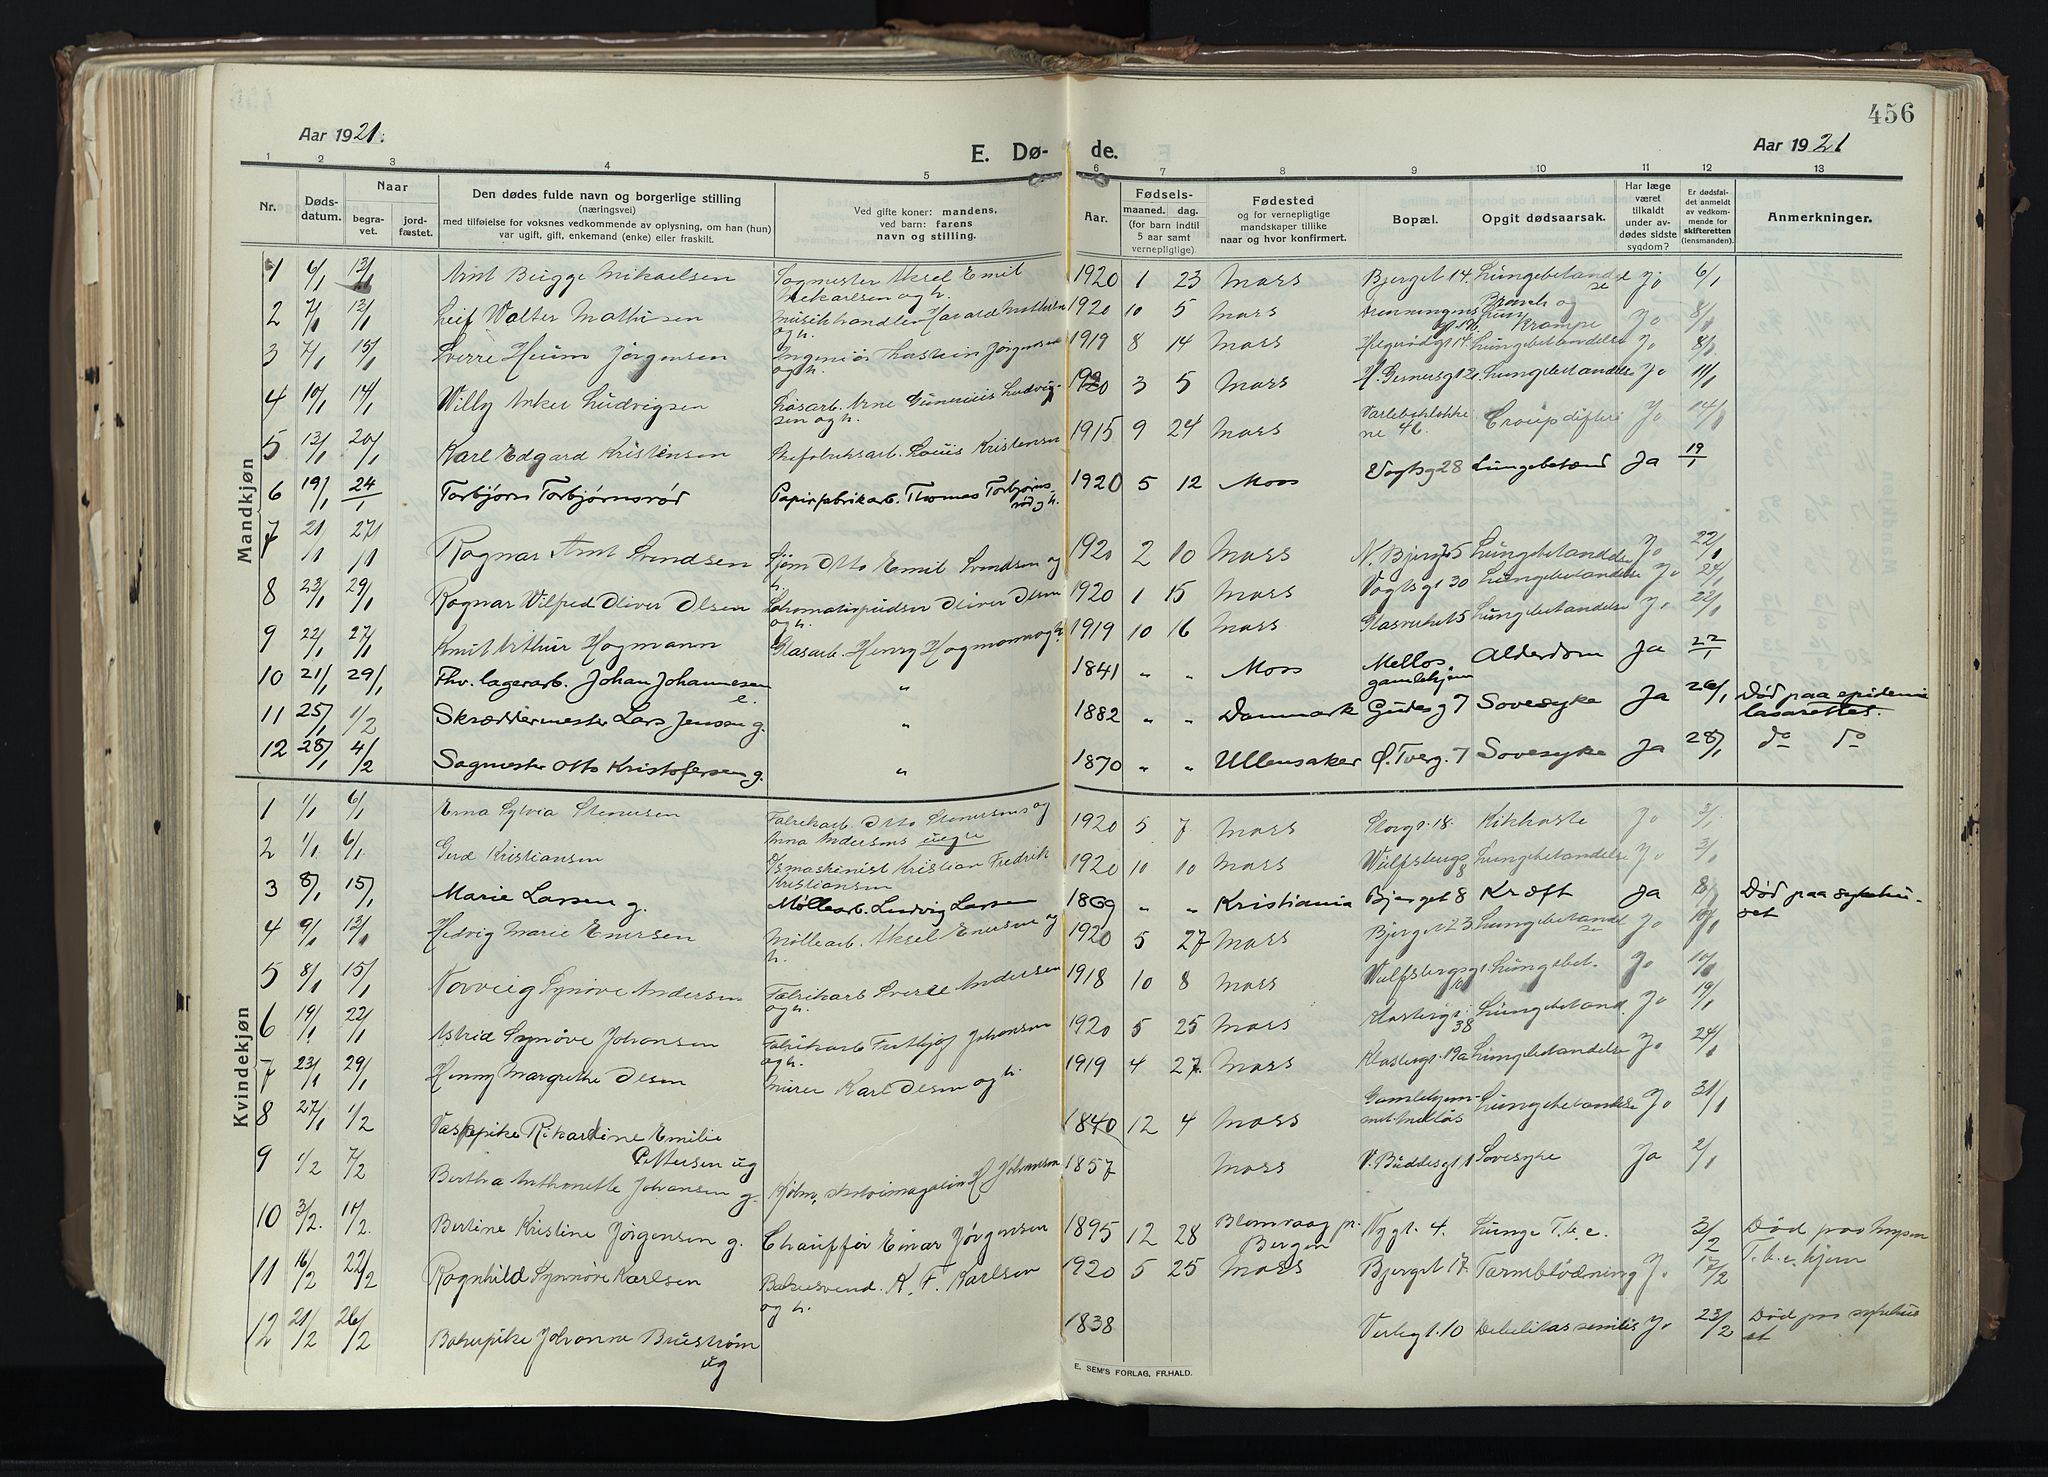 456
Aar 1921.
E. Dø-
de.
Aar 1921
1 2 3 4 5 6 7 8 9 10 11 12 13
Nr.
Døds-
datum.
Naar
begra-
vet.
jord-
fæstet.
Den dødes fulde navn og borgerlige stilling
(næringsvei)
med tilføielse for voksnes vedkommende av oplysning, om han (hun)
var ugift, gift, enkemand (enke) eller fraskilt.
Ved gifte koner: mandens,
ved barn: farens
navn og stilling.
Aar.
Fødsels-
maaned. dag.
(for barn indtil
5 aar samt
vernepligtige).
Fødested
og for vernepligtige
mandskaper tillike
naar og hvor konfirmert.
Bopæl.
Opgit dødsaarsak.
Har læge
været
tilkaldt
under av-
dødes sidste
sygdom?
Er dødsfal-
det anmeldt
av vedkom-
mende for
skifteretten
(lensmanden).
Anmerkninger.
Mandkjøn
1 6/1 13/1 Arnt Bügge Mikaelsen Sagmester Aksel Emil 1920 1 23 Moss Bjerget 14. Lungebetændelse Ja 6/1
Mikaelsen og h.
2 7/1 13/1 Leif Walter Mathisen Musikhandler Harald Mathisen 1920 10 5 Moss Dronningensgt 17b. Bronch og Krampe Ja 8/1
og h.
3 7/1 15/1 Sverre Heum Jørgensen Ingeniør Thorstein Jørgensen 1919 8 14 Moss 14. Lungebetændelse Ja 8/1
og h.
4 10/1 14/1 Willy Anker Ludvigsen Løsarb. Arne Gunerius Ludvig- 1920 3 5 Moss H. Gernersgt 12 Lungebetændelse Ja 11/1
sen og h.
5 13/1 20/1 Karl Edgard Kristensen Skofabrikarb. Louis Kristensen 1915 9 24 Moss Varlebakløkke ne 46. Croup difteri Ja 14/1
6 19/1 24/1 Torbjørn Torbjørnsrød Papirfabrikarb. Thomas Torbjørns- 1920 5 12 Moss Vogtsg 28 Lungebetænd Ja 19/1
rød og h.
7 21/1 27/1 Ragnar Arnt Svendsen Sjøm Otto Emil Svendsen og 1920 2 10 Moss N. Bjergt 5 Lungebetændelse Ja 22/1
h.
8 23/1 29/1 Ragnar Wilfred Oliver Olsen Lokomotivpudser Oliver Olsen 1920 1 15 Moss Vogtsgt 30 Lungebetændelse Ja 24/1
og h.
9 22/1 27/1 Knut Arthur Hagmann Glasarb. Henry Hagmann og h. 1919 10 16 Moss Glasverket 5 Lungebetændelse Ja 22/1
10 21/1 29/1 Fhv. lagerarb. Johan Johannesen e. " 1841 " " Moss Mellos gamlehjem Alderdom Ja 22/1
11 25/1 1/2 Skræddermester Lars Jensen g. " 1882 " " Danmark Gudesg 7 Sovesyke Ja 26/1 Død paa epidemi lasarettet.
12 28/1 4/2 Sagmester Otto Kristofersen g. " 1870 " " Ullensaker Ø. Tverg. 7 Sovesyke Ja 28/1 do do
Kvindekjøn
1 1/1 6/1 Erna Sylvia Stenersen Fabrikarb. Otto Stenersens og 1920 5 7 Moss Storgt. 18. Kikhoste Ja 3/1
Anna Andersens uegte
2 1/1 6/1 Gerd Kristiansen Ismaskinist Kristian Fredrik 1920 10 10 Moss Wulfsbergs 8 Lungebetændelse Ja 3/1
Kristiansen
3 8/1 15/1 Marie Larsen g. Møllearb. Ludvig Larsen 1869 " " Kristiania Bjerget 8 Kræft Ja 8/1 Død paa sykehu- set
4 9/1 13/1 Hedvig Marie Enersen Møllearb. Aksel Enersen og 1920 5 27 Moss Bjerget 23 Lungebetændelse Ja 10/1
h.
5 8/1 15/1 Norveig Synøve Andersen Fabrikarb Sverre Andersen 1918 10 8 Moss Wulfsbergsgt. Lungebet. Ja 10/1
og h.
6 19/1 22/1 Astrid Synøve Johansen Fabrikarb Fritjof Johansen 1920 5 25 Moss 38 Lungebetænd Ja 19/1
og h.
7 23/1 29/1 Henny Margrethe Olsen Murer Karl Olsen og h. 1919 4 27. Moss 19a Lungebetændelse Ja 24/1
8 27/1 1/2 Vaskepike Rikardine Emilie Pettersen ug 1840 12 4 Moss Gamlehjem- met Melløs Lungebetændelse Ja 31/1
9 1/2 7/2 Bertha Anthonette Johansen g. Kjøbm. H Johansen 1857 Moss V. Buddesgt 1 Sovesyke Ja 2/1
10 3/2. 11/2. Bertine Kristine Jørgensen g. Chauffør Einar Jørgensen 1895 12 28 Blomvaag pr. Bergen Nygt. 4. Lunge T.b.c. 3/2 Død paa Mysen T.b.c. hjem
11 16/2 22/2 Ragnhild Synnøve Karlsen Bakersvend. K. F. Karlsen 1920 5 25 Moss Bjerget 17. Tarmblødning Ja 17/2
og h.
12 21/2 26/2 Bakerpike Johanne Buestrøm ug 1838 Verlegt. 10 Debelitas senilis Ja 23/2 Død paa sykehus et
E. SEM'S FORLAG, FR.HALD.